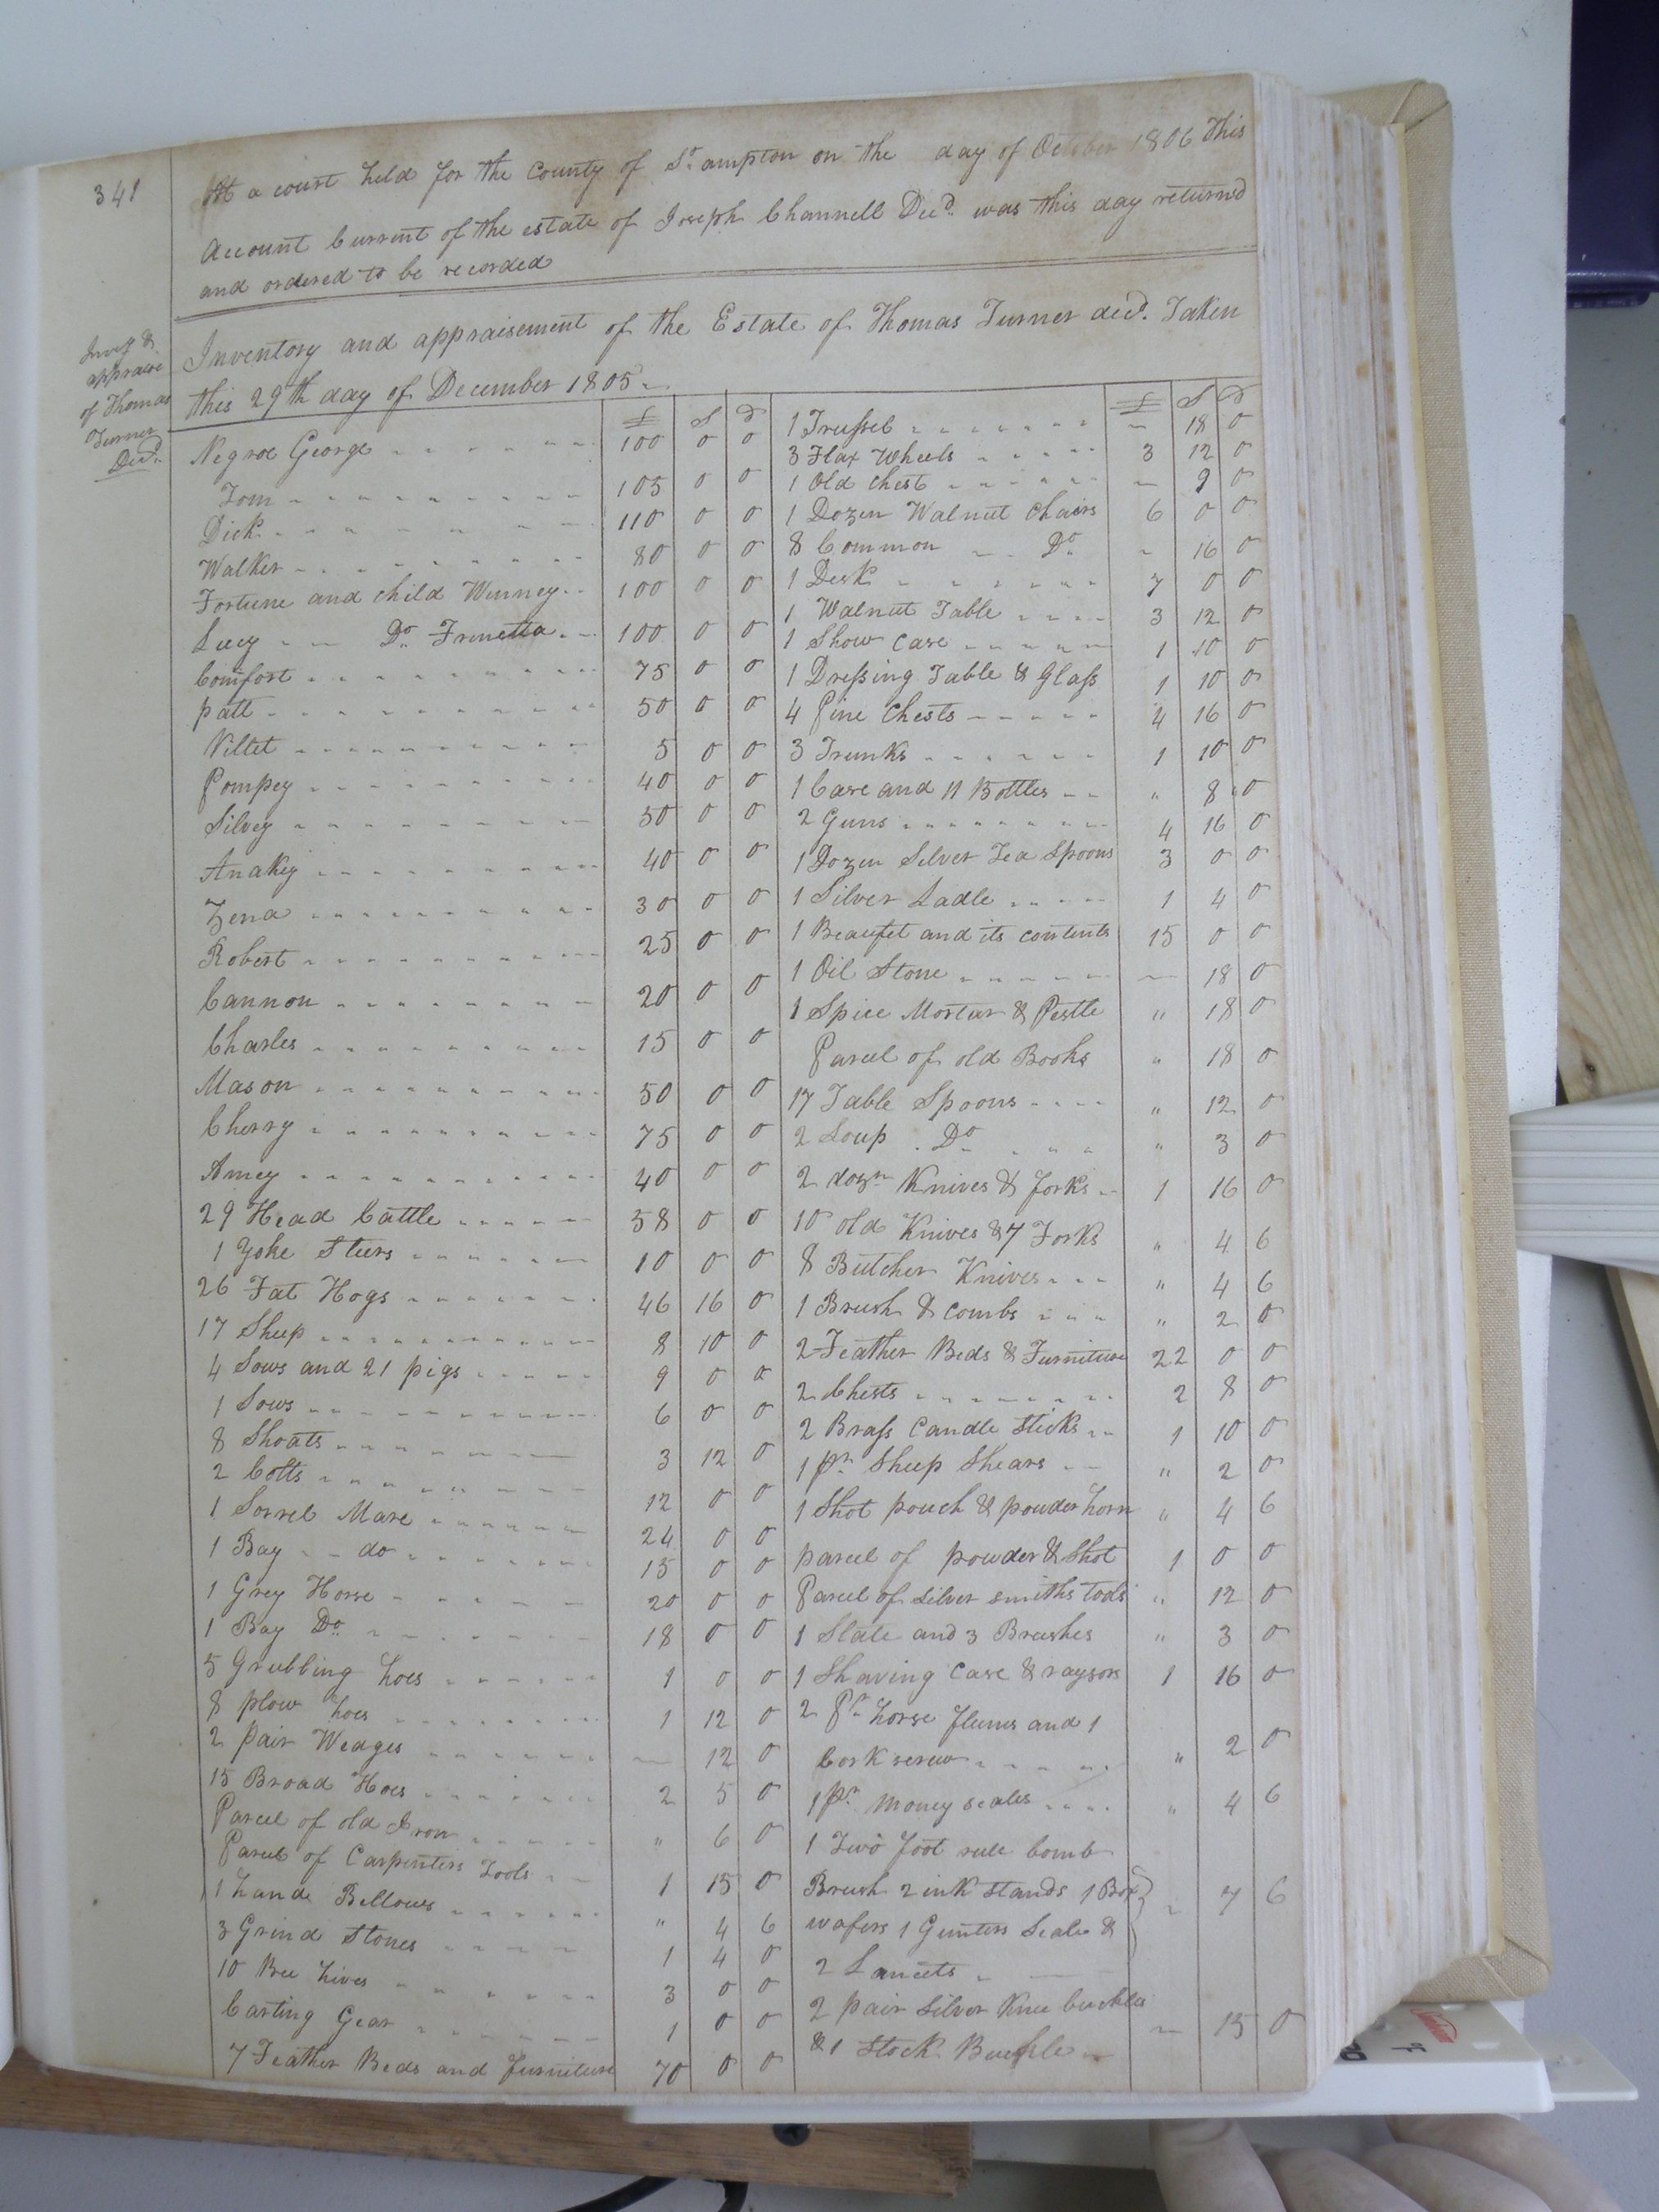 341
At a court held for the County of So. ampton on the day of October 1806 This
Account Current of the estate of Joseph Channell Decd. was this day returned
and ordered to be recorded
Invy &
appraise
of Thomas
Turner
Decd.
Inventory and appraisement of the Estate of Thomas Turner decd. Taken
this 29th day of December 1805
£ S d
Negroe George 100 0 0
Tom 105 0 0
Dick 110 0 0
Walker 80 0 0
Fortune and child Winney 100 0 0
Lucy Do. 100 0 0
Comfort 75 0 0
patt 50 0 0
Viltet 5 0 0
Pompey 40 0 0
Silvey 50 0 0
Anakey 40 0 0
Zena 30 0 0
Robert 25 0 0
Cannon 20 0 0
Charles 15 0 0
Mason 50 0 0
Cherry 75 0 0
Amey 40 0 0
29 Head Cattle 58 0 0
1 Yoke Steers 10 0 0
26 Fat Hogs 46 16 0
17 Sheep 8 10 0
4 Sows and 21 pigs 9 0 0
1 Sows 6 0 0
8 Shoats 3 12 0
2 Colts 12 0 0
1 Sorrel Mare 24 0 0
1 Bay do 15 0 0
1 Grey Horse 20 0 0
1 Bay Do. 18 0 0
5 Grubbing hoes 1 0 0
8 plow hoes 1 12 0
2 pair Wedges — 12 0
15 Broad Hoes 2 5 0
Parcel of old Iron " 6 0
Parcel of Carpenters Tools 1 15 0
1 hand Bellows " 4 6
3 Grind Stones 1 4 0
10 Bee hives 3 0 0
Carting Gear 1 0 0
7 Feather Beds and furniture 70 0 0
£ S d
1 Trussel — 18 0
3 Flax Wheels 3 12 0
1 Old chest — 9 0
1 Dozen Walnut Chairs 6 0 0
8 Common Do " 16 0
1 Desk 7 0 0
1 Walnut Table 3 12 0
1 Show Case 1 10 0
1 Dressing Table & Glass 1 10 0
4 Pine Chests 4 16 0
3 Trunks 1 10 0
1 Case and 11 Bottles " 8 0
2 Guns 4 16 0
1 Dozen Silver Tea Spoons 3 0 0
1 Silver Ladle 1 4 0
1 Beaufet and its contents 15 0 0
1 Oil Stone — 18 0
1 Spice Mortar & Pestle " 18 0
Parcel of old Books " 18 0
17 Table Spoons " 12 0
2 Soup Do " 3 0
2 dozn Knives & forks 1 16 0
10 old Knives & 7 Forks " 4 6
8 Butcher Knives " 4 6
1 Brush & combs " 2 0
2 Feather Beds & Furniture 22 0 0
2 Chests 2 8 0
2 Brass Candle Sticks 1 10 0
1 pr. Sheep Shears " 2 0
1 Shot pouch & powder horn " 4 6
parcel of powder & Shot 1 0 0
Parcel of silver smiths tools " 12 0
1 Slate and 3 Brushes " 3 0
1 Shaving Case & raysors 1 16 0
2 Pr. horse flems and 1
Cork screw " 2 0
1 pr. money scales " 4 6
1 Two foot rule Comb
Brush 2 ink stands 1 Box
wafers 1 Gunters Scale & — 7 6
2 Lancets
2 pair silver knee buckles
& 1 Stock Buckle — 15 0